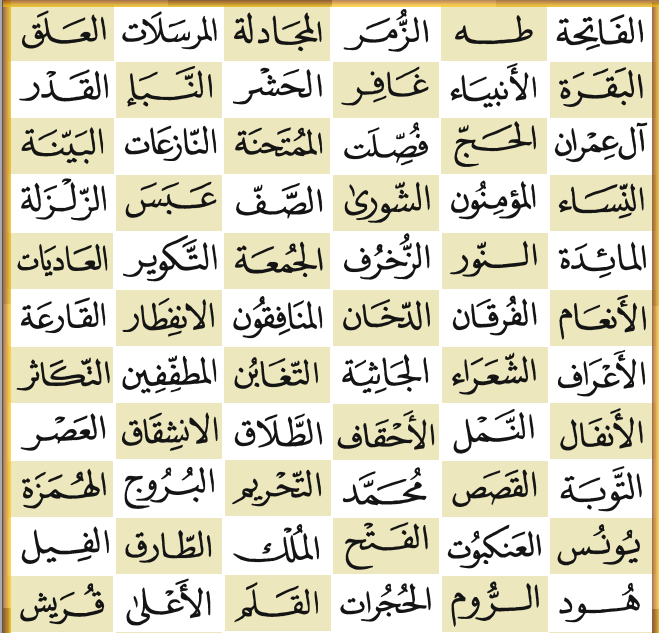 الفَاتِحة طه الزُّمَر المجَادلة المرسَلات العَلَق
البَقَرَة الأَنبيَاء غَافِر الحَشْر النَّبَإ القَدْر
آل عِمْران الحَجّ فُصِّلَت المُمْتَحنَة النّازعَات البَيّنَة
النِّسَاء المؤمِنُون الشّورىٰ الصَّفّ عَبَسَ الزّلْزَلة
المائِدَة النّور الزّخْرُف الجُمعَة التَّكوير العَاديَات
الأَنعَام الفُرقَان الدّخَان المنَافِقُون الانفِطَار القَارعَة
الأَعْرَاف الشّعَرَاء الجَاثِيَة التّغَابُن المطفِّفِين التّكَاثر
الأَنفَال النَّمْل الأَحْقَاف الطَّلَاق الانشِقَاق العَصْر
التَّوبَة القَصَص مُحَمَّد التّحْريم البُرُوج الهُمَزَة
يُونُس العَنكبُوت الفَتْح المُلْك الطّارق الفِيل
هُود الرُّوم الحُجُرات القَلَم الأَعْلىٰ قُرَيش